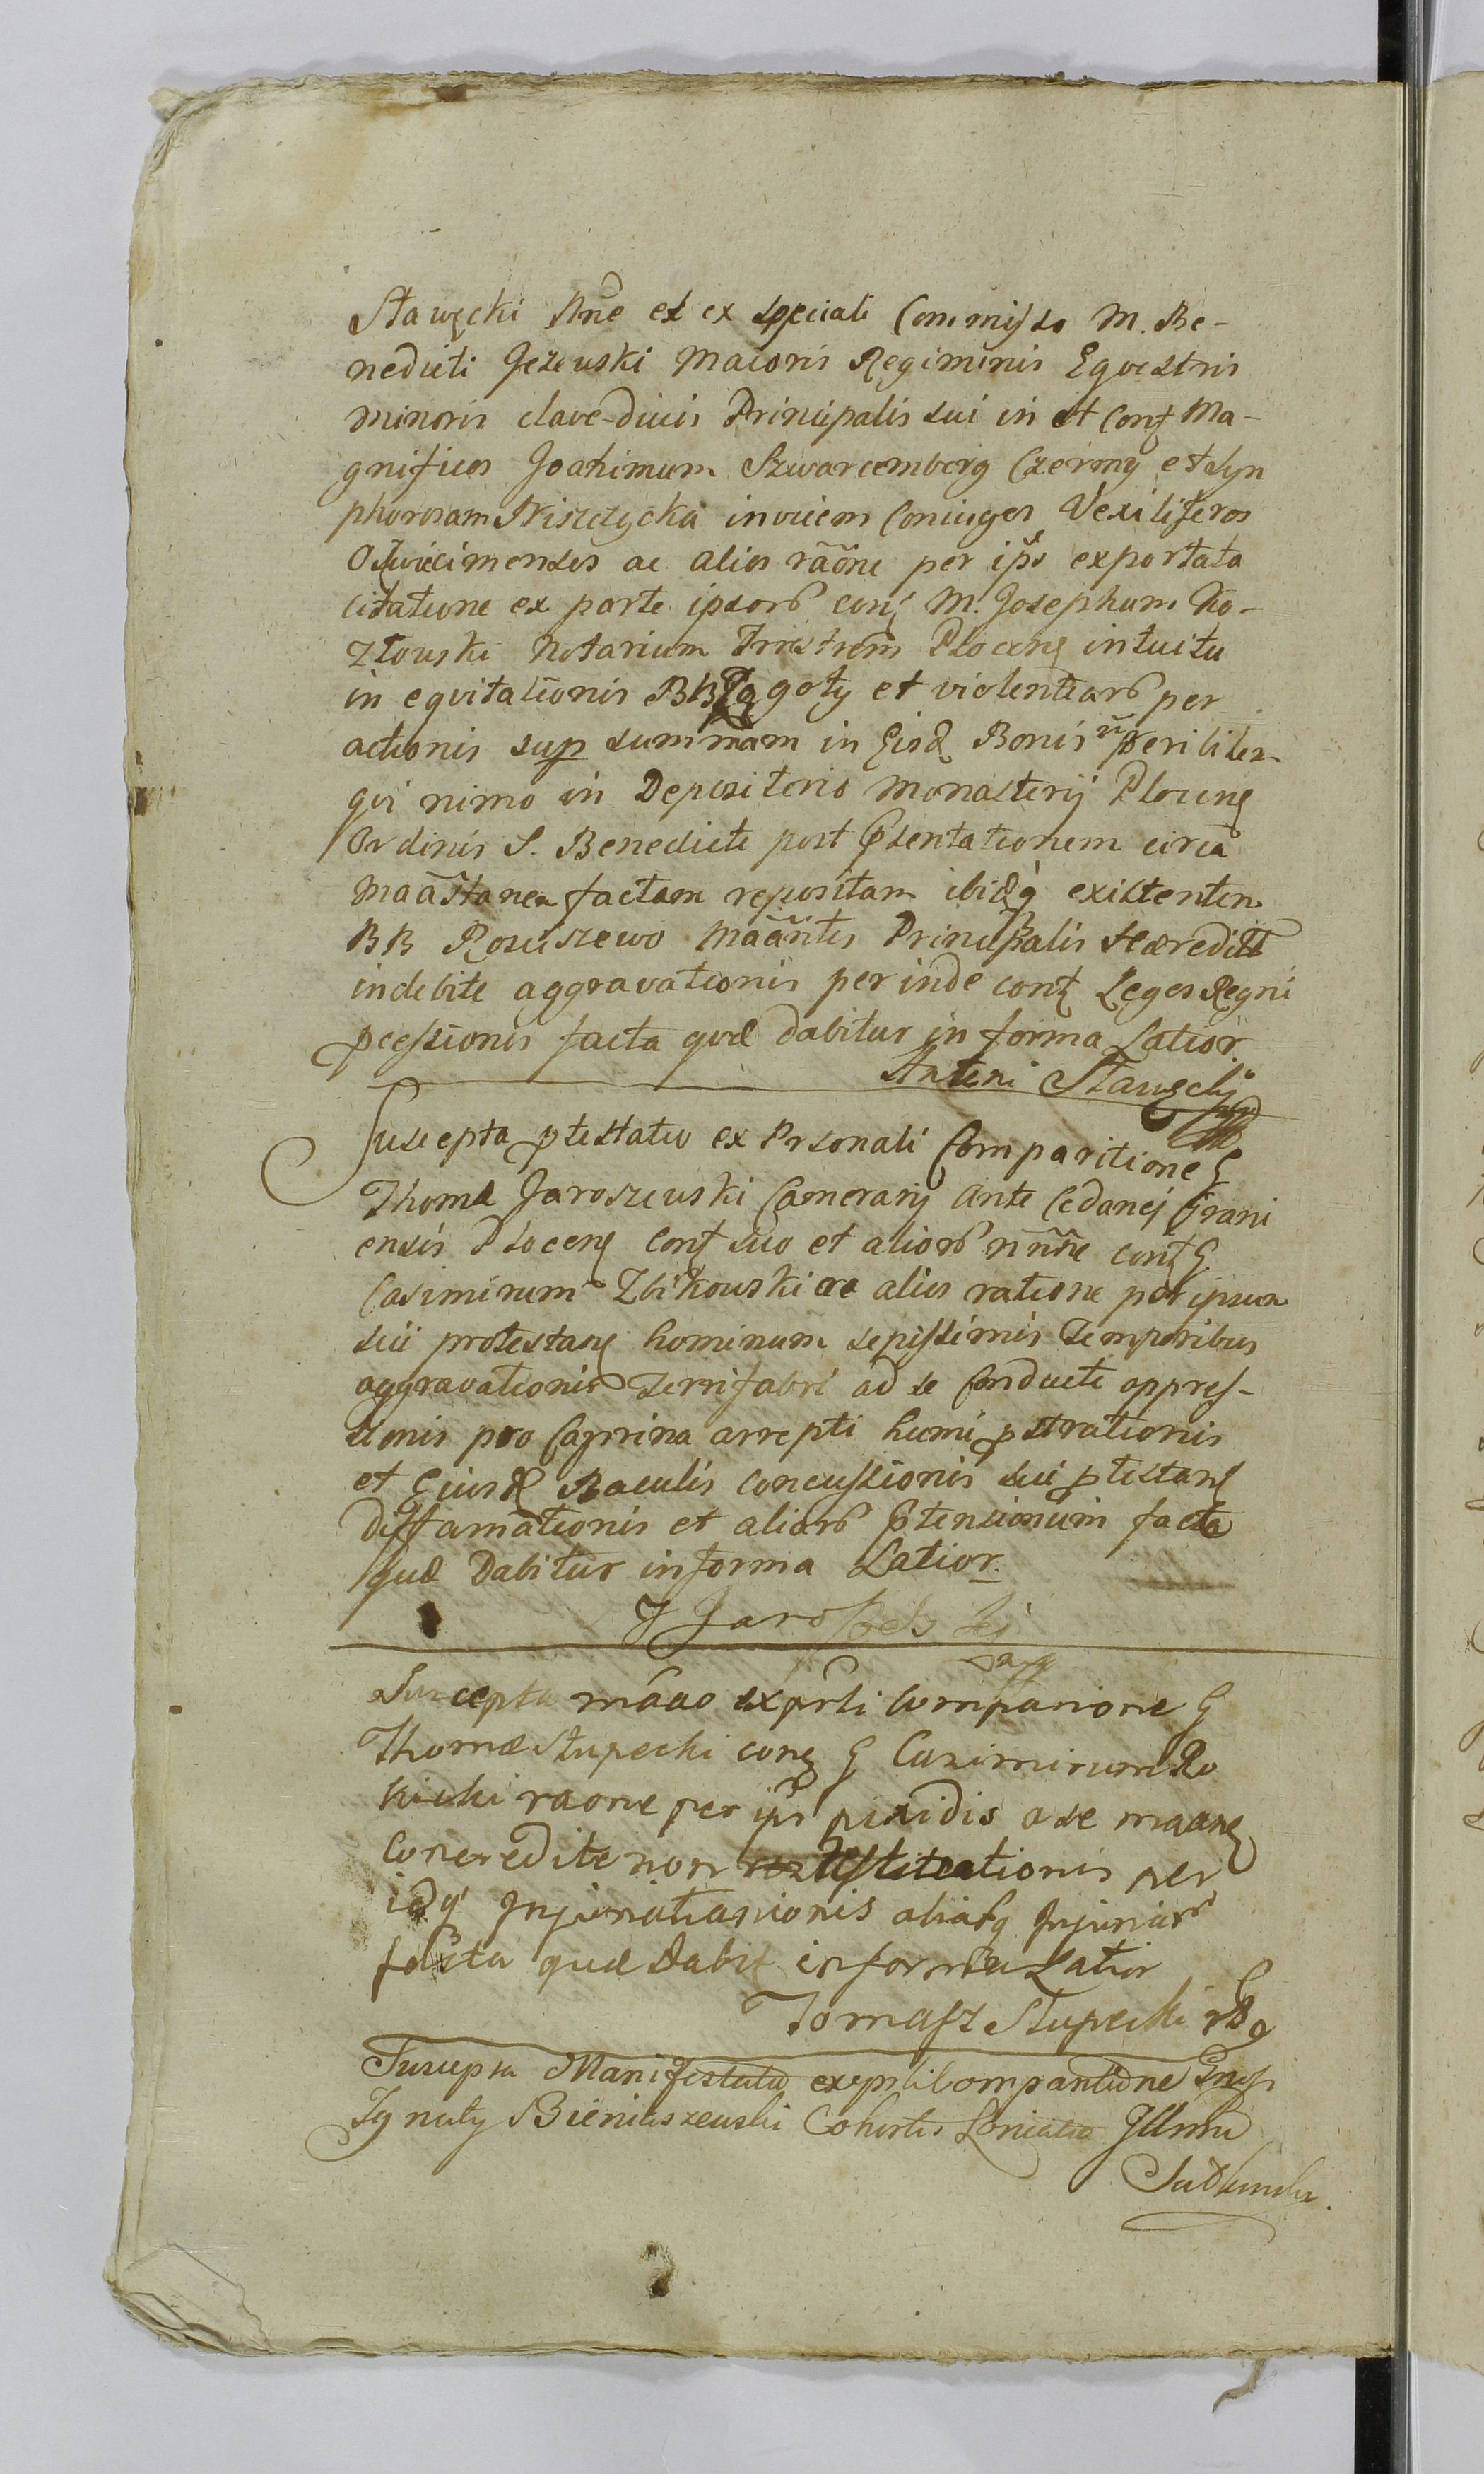 Stawęcki Nne et ex speciali Commisso M. Be-
nedicti Jeżewski Maioris Regiminis Eqvestris
minoris clave-ducis Principalis sui in et Conţ Ma-
gnificos Joahimum Szwarcemberg Czerny et Syn
phorosam Niszczycka invicem Coniuges Vexiliferos
Oswiecimenses ac alios rãõne per ip̃s exportata
citatione ex parte ipsorũ conţ M. Josephum Ko-
złowski Notarium Trrestrem Plocenş intuitu
in eqvitationis BB goły et violentiarũ per
actionis sup summam in Eisd Bonis
qvi nimo in Depositorio Monasterij Plocenş
Ordinis S. Benedicti post Pñsentationem circa
Maãstanea factam repositam ibidq̃ existenten.
BB Rosciszewo Maãntis Principalis Hæreditt
indebite aggravationis per inde conţ Leges Regni
pcessionis facta qvæ dabitur in forma Latior.
Antoni Stawęcky
Suscepta ptestatio ex Prsonali Comparitione G
Thomæ Jaroszewski Camerarij Ante Cedanej Grani
ensis Plocenş Conţ suo et aliorũ nñne conţ G.
Casimirum Zbikowski ac alios ratione per ipsum
sui protestanş hominum sepissimis Temporibus
aggravationis Ferrifabri ad se Conducti oppres-
sionis pro Caprina arrepti humi pstrationis
et Eiusd Baculis Concussionis sui ptestanş
diffamationis et aliarũ Ptensionum facta
quæ Dabitur in forma Latior.
T Jaroszewski
Suscepta mãao ex prsli Comparione G
Thomæ Słupecki conţ G Casimirum Ro
kicki raone per ips pixidis a se maanţ
Concredite non restitutionis per
idq̃ Injuriationis aliarq Injuriarũ
facta quæ dabit in forma Latior
Tomasz Słupecki
Suscepta Manifestatio ex prsli Comparitione Gnsi
Ignaty Bieniaszewski Cohortis Loricatæ Illmi